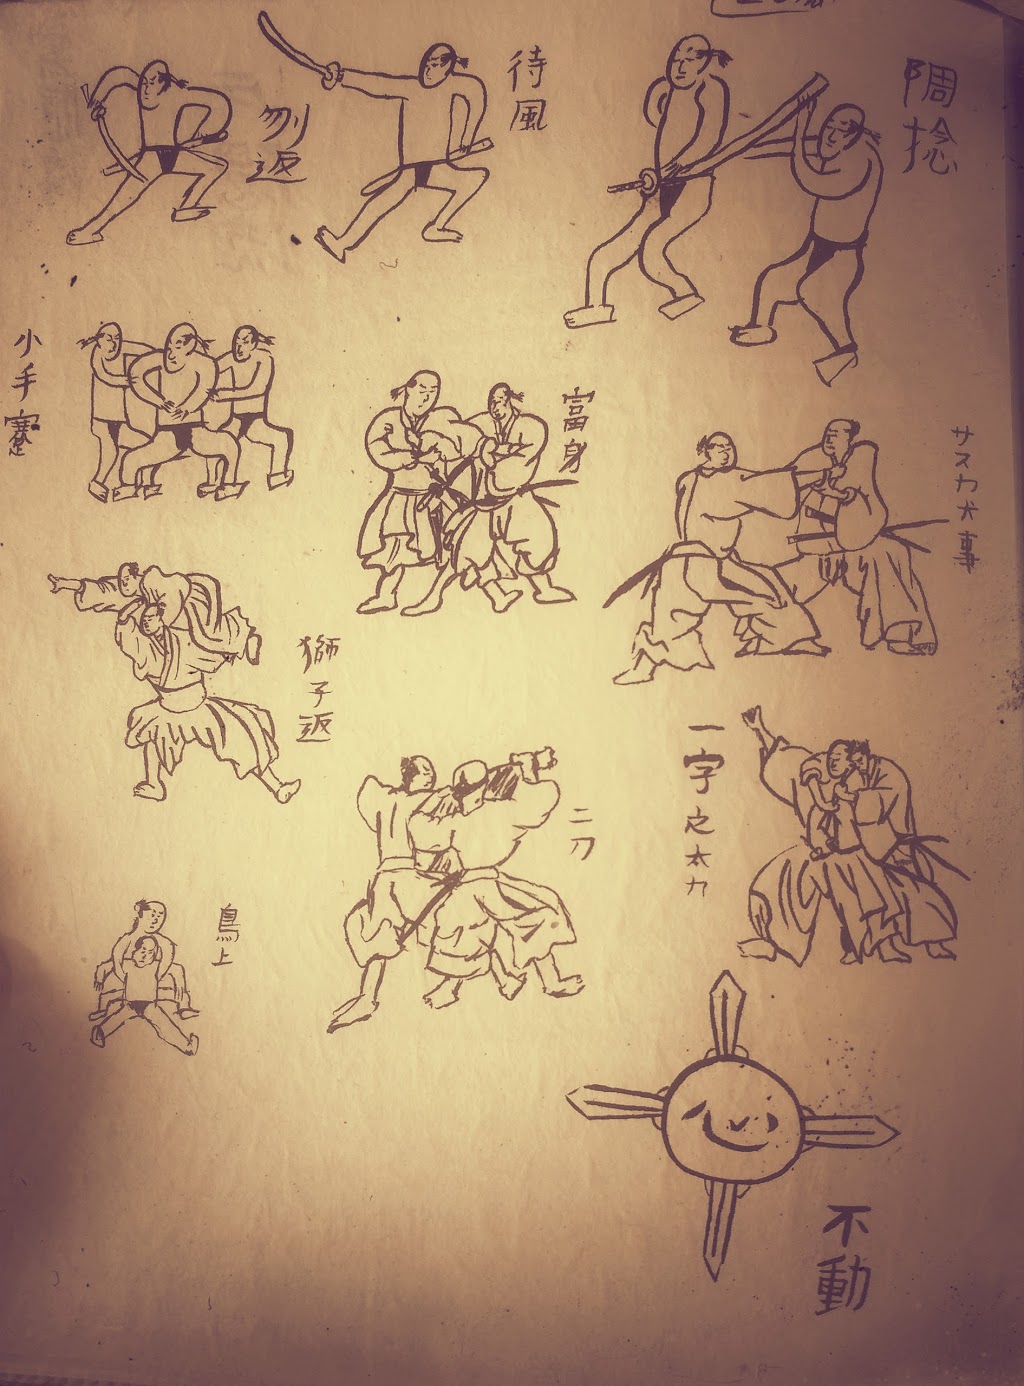 待風
返
捻
小手
富身
サスカ大事
獅子返
二刀
一字之太刀
鳥上
不動